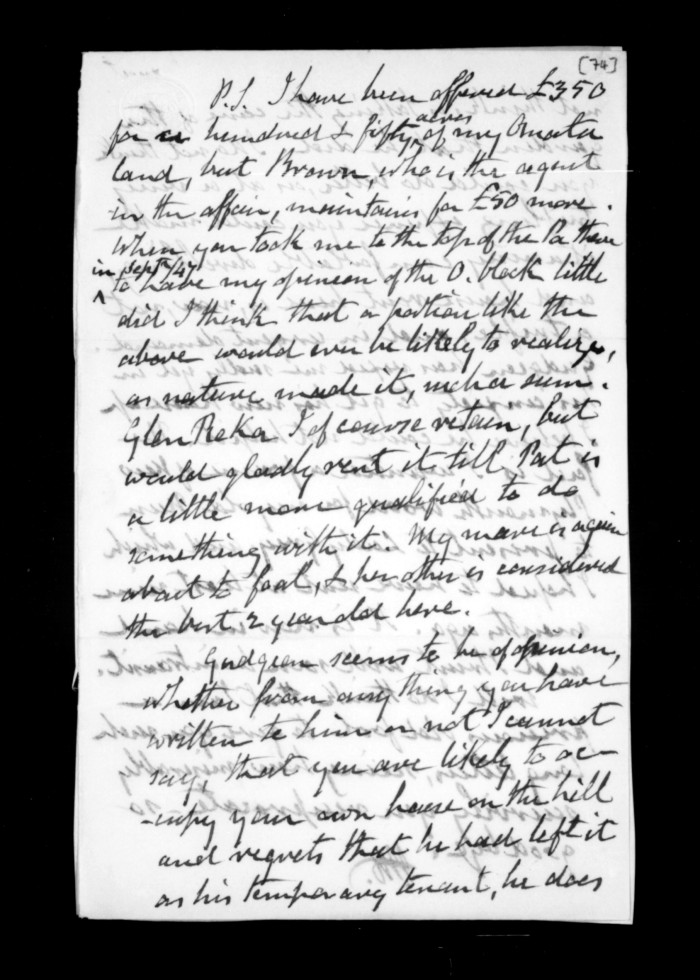 [74]
P.S. I have been offered £350
for a hundred & fifty acres of my Omata
land, but Brown, who is the agent
in the affair, maintains for £50 more.
When you took me to the top of the Pa there
in Septr/47
to have my opinion of the O. block little
did I think that a portion like the
above would ever be likely to realize,
as nature made it, such a sum.
Glen Reka I of course retain, but
would gladly rent it till Pat is
a little more qualified to do
something with it. My mare is again
about to foal, & her other is considered
the best 2 year old here.
Gudgeon seems to be of opinion,
whether from any thing you have
written to him or not I cannot
say, that you are likely to oc-
-cupy your own house on the hill
and regrets that he had left it
as his temporary tenant, he does